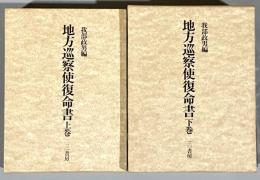 我部政男編
地方巡察使復命書 上巻
三一書房
我部政男編
地方巡察使復命書 下巻
三一書房